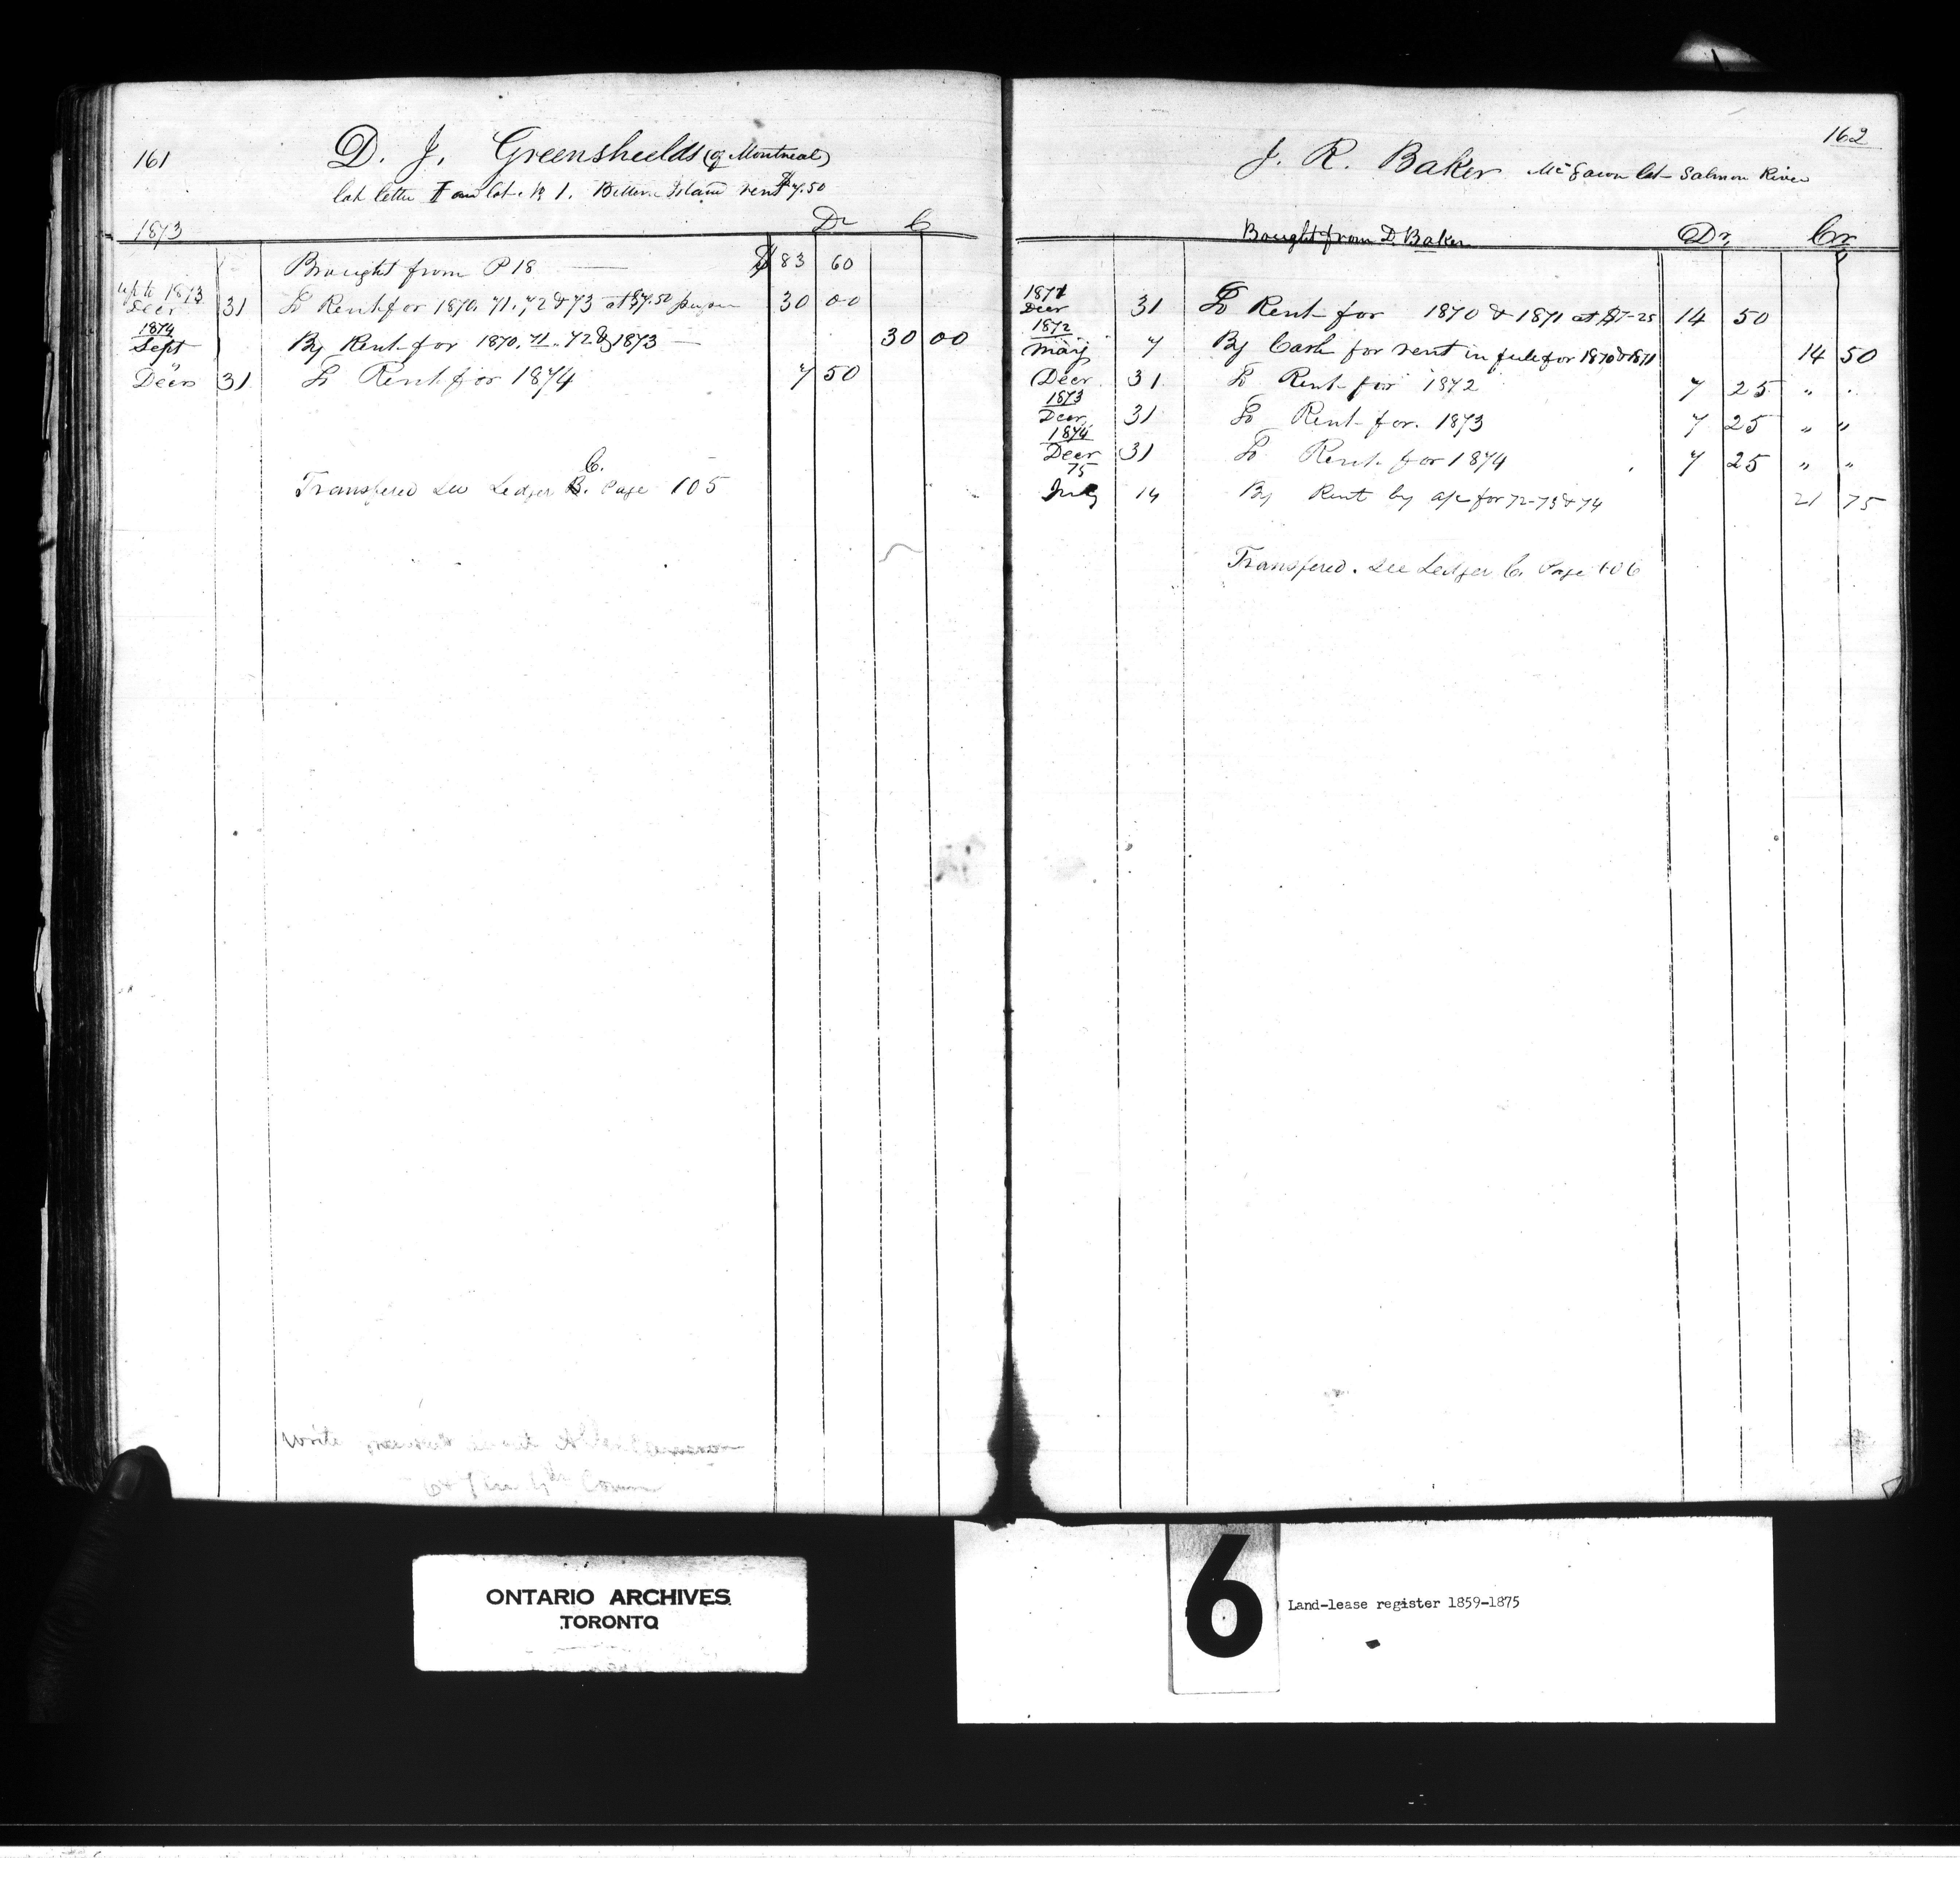 161
D. J. Greenshields (of Montreal)
lot letter I on lot. № 1. Bittern Island rent $7.50
1873 Dr C
Brought from P 18 — $ 83 60
up to 1873
Decr 31 To Rent for 1870. 71. 72 & 73 at $7.50 30 00
1874
Sept By Rent for 1870. 71. 72 & 1873 — 30 00
" Decr 31 To Rent for 1874 7 50
C.
Transfered See Ledger B. Page 105
Write
Ontario ARCHIVES
TORONTO
162
J. R. Baker lot Salmon River
Bought from D. Baker Dr. Cr
1871
Decr 31 To Rent for 1870 & 1871 at $7-25 14 50
1872
May 7 By Cash for rent in full for 1870 & 1871 14 50
Decr 31 To Rent for 1872 7 25 " "
1873
Decr 31 To Rent for. 1873 7 25 " "
1874
Decr 31 To Rent for 1874 7 25 " "
75
July 14 By Rent by a/c for 72-73 & 74 21 75
Transfered. See Ledger C. Page 106
6
Land-lease register 1859-1875